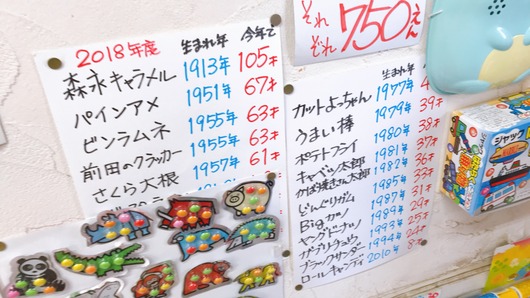 2018年度 生まれ年 今年で
森永キャラメル 1913年 105才
パインアメ 1951年 67才
ビンラムネ 1955年 63才
前田のクラッカー 1955年 63才
さくら大根 1957年 61才
それぞれ 750えん
生まれ年 今年で
カットよっちゃん 1977年
うまい棒 1979年 39才
ポテトフライ 1980年 38才
キャベツ太郎 1981年 37才
かば焼きさん太郎 1982年 36才
どんぐりガム 1985年 33才
Bigカツ 1987年 31才
ヤングドーナツ 1989年 29才
サワーデリチュウ 1993年 25才
ブラックサンダー 1994年 24才
ロールキャンディ 2010年 8才
ジャック